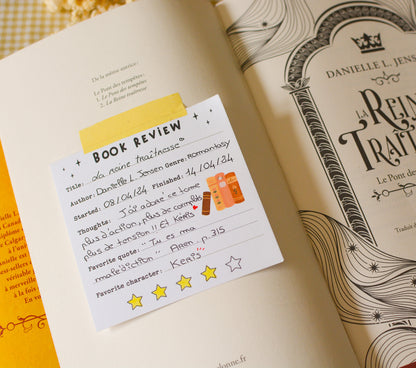 De la même autrice :
Le Pont des tempêtes :
1. Le Pont des tempêtes
2. La Reine traîtresse
BOOK REVIEW
Title: "La reine traîtresse"
Author: Danielle L. Jensen Genre: Romantasy
Started: 08/04/24 Finished: 14/04/24
Thoughts: J'ai adoré ce tome
plus d'action, plus de complots
plus de tension !! Et Keris
Favorite quote: "Tu es ma
malédiction" Aren. p. 315
Favorite character: Keris
DANIELLE L. JENS
LA
REIN
TRAÎT
Le Pont de
Traduit d